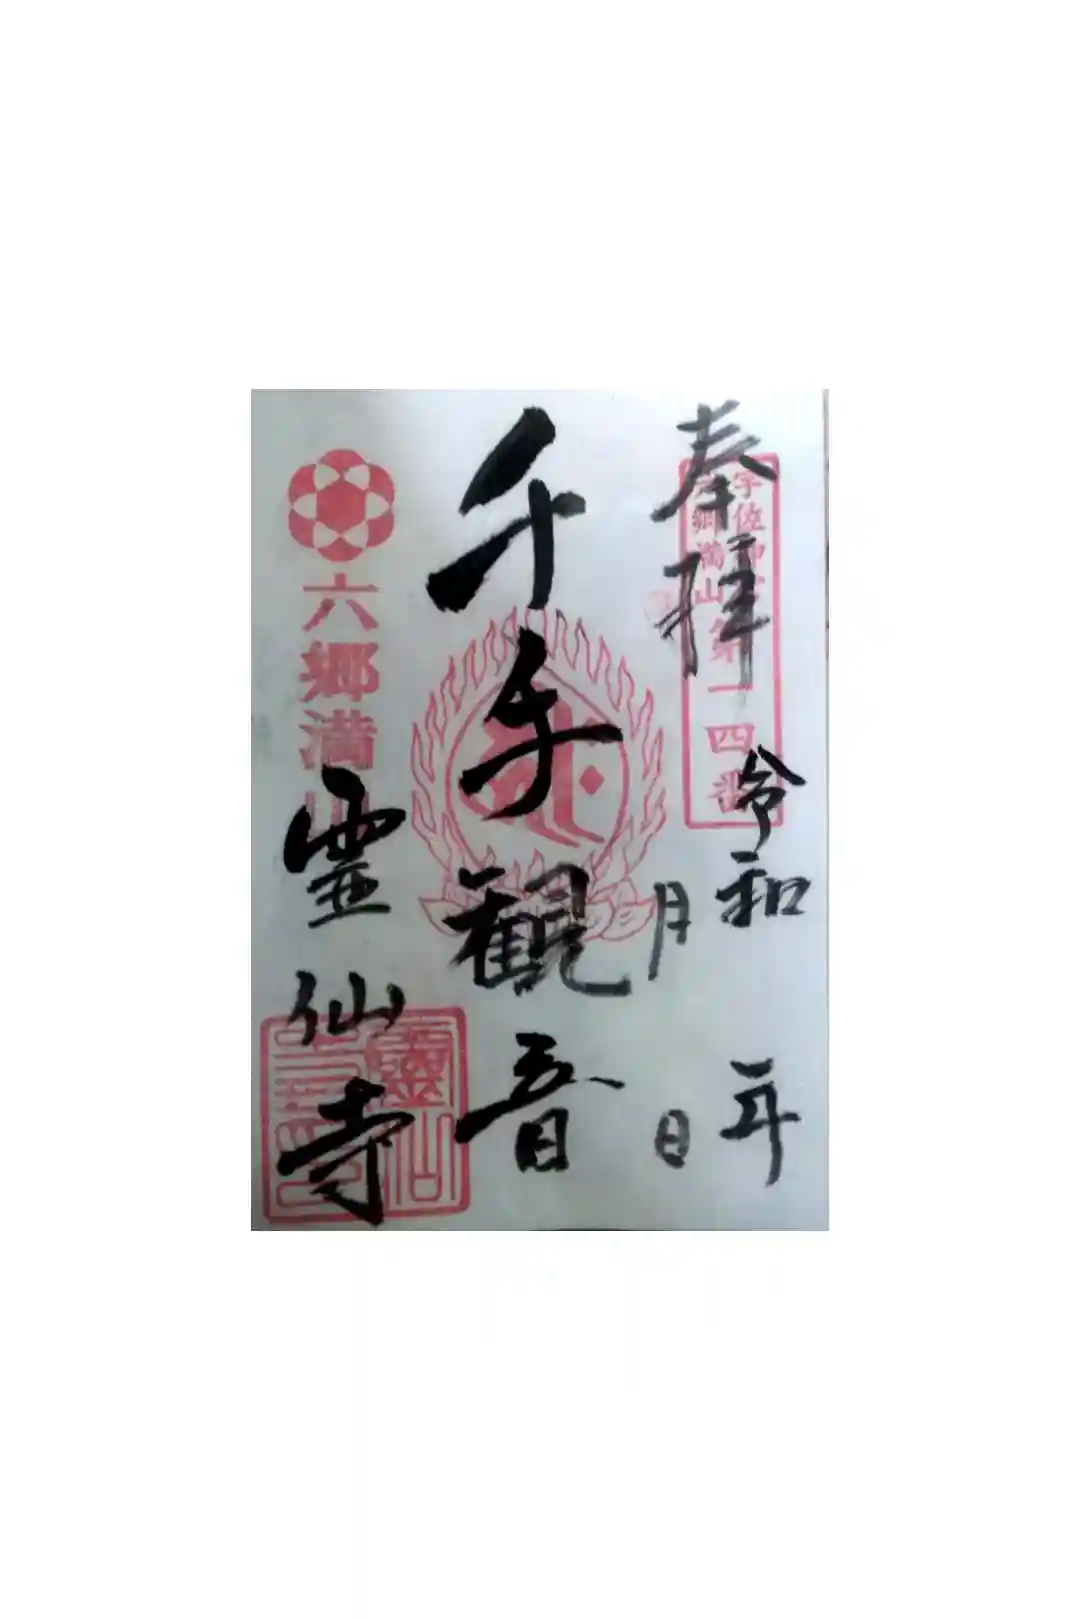 奉拝
宇佐神宮
六郷満山第一四番
令和 年
月 日
千手観音
六郷満山
霊仙寺